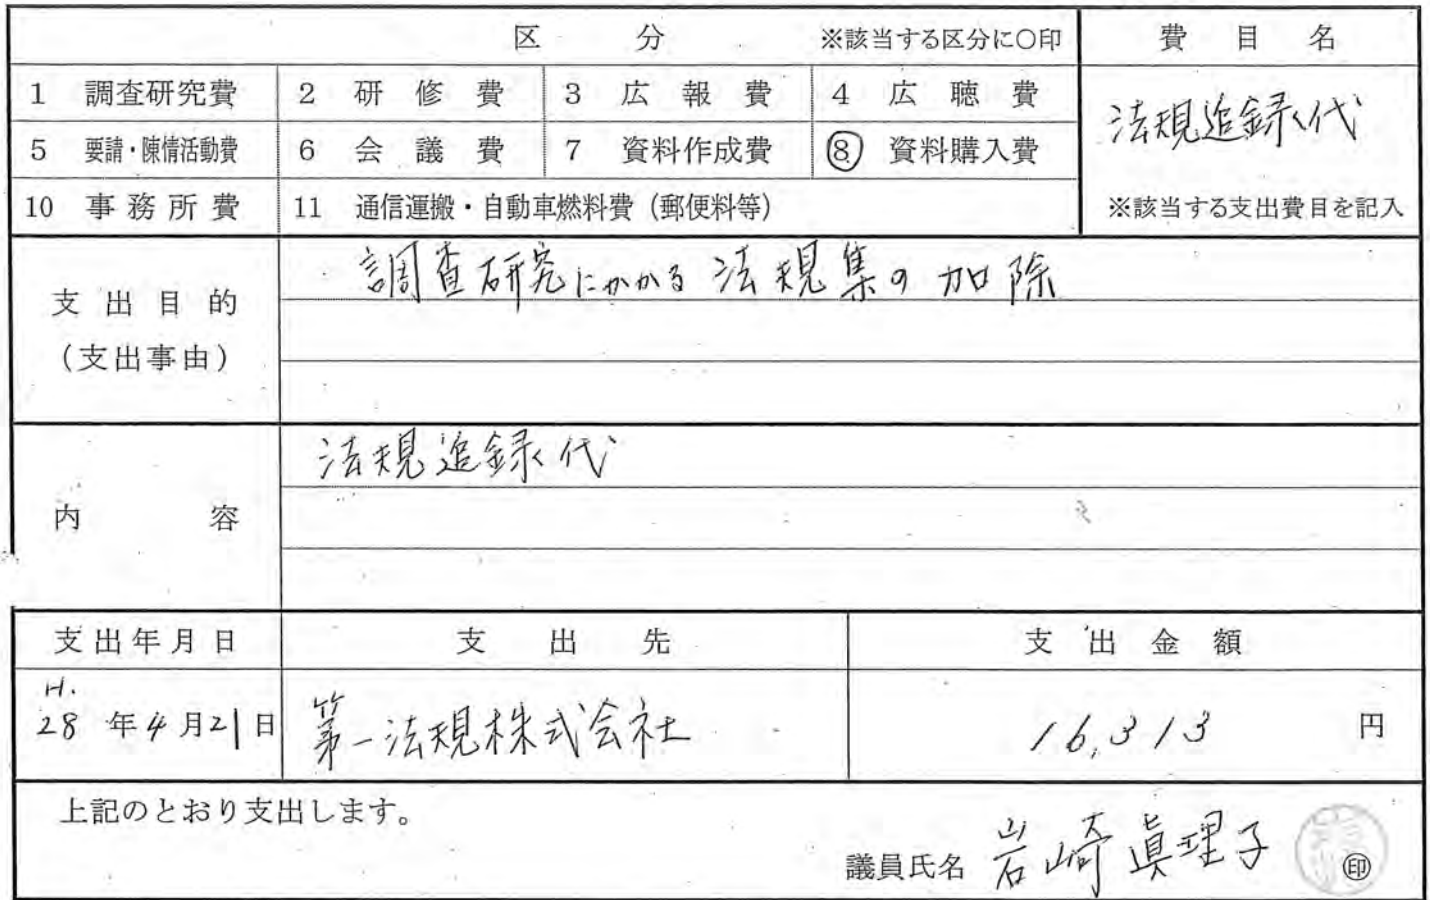 区 分 ※該当する区分に○印 費 目 名
1 調査研究費 2 研 修 費 3 広 報 費 4 広 聴 費
法規追録代
5 要請・陳情活動費 6 会 議 費 7 資料作成費 ⑧ 資料購入費
10 事務所費 11 通信運搬・自動車燃料費（郵便料等） ※該当する支出費目を記入
調査研究にかかる法規集の加除
支出目的
（支出事由）
法規追録代
内 容
支出年月日 支 出 先 支 出 金 額
H.
28 年 4 月 21 日 第一法規株式会社 16,313 円
上記のとおり支出します。
議員氏名 岩崎眞理子 ㊞